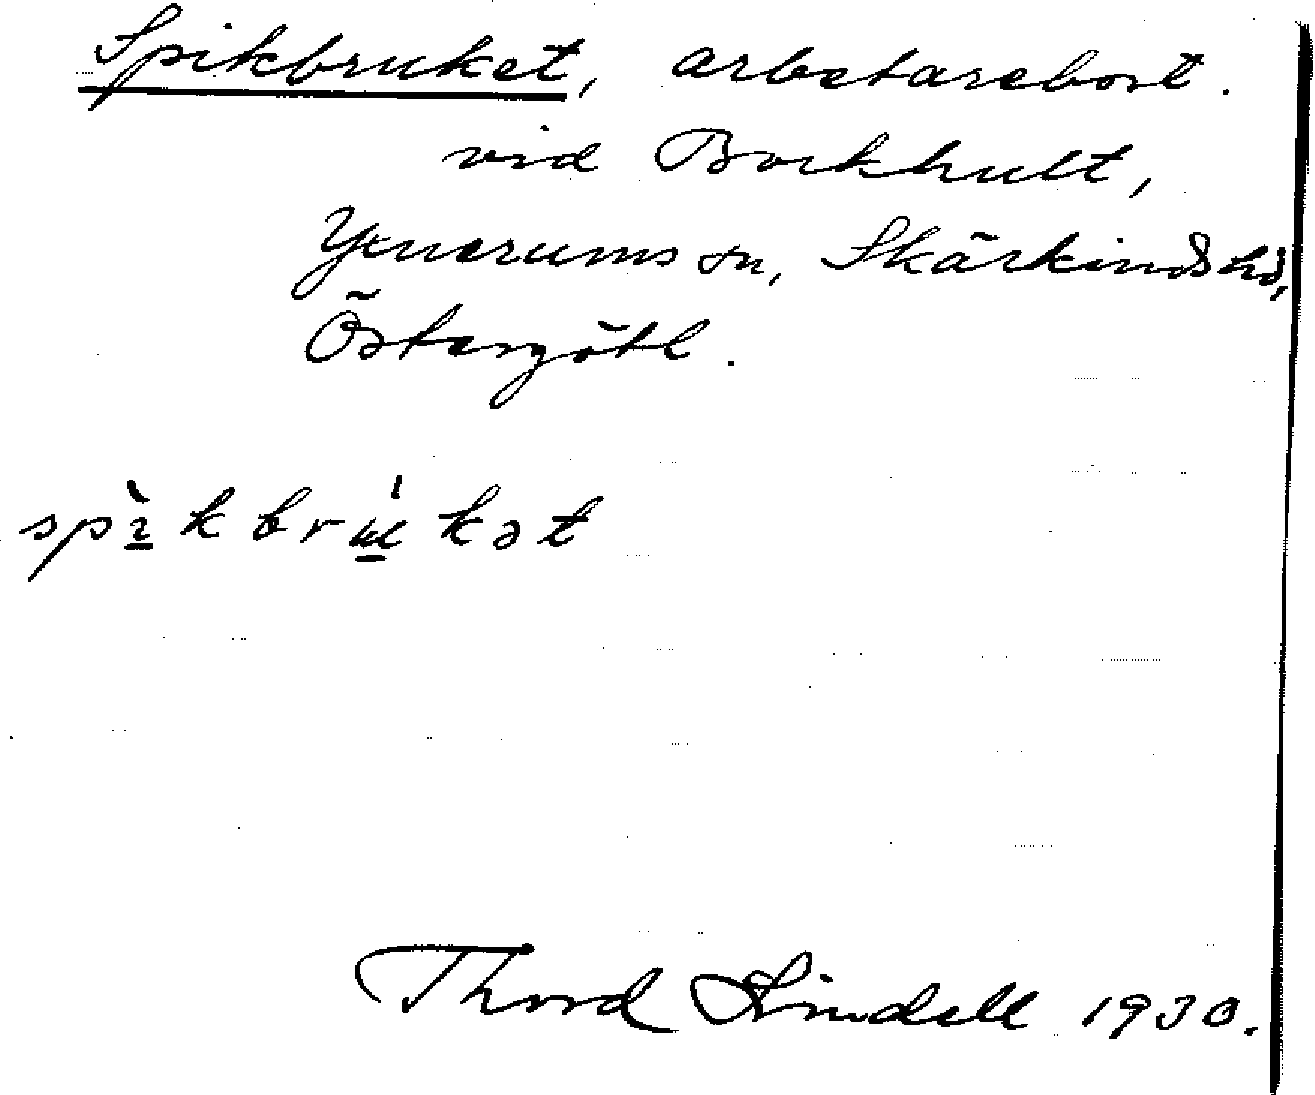 Spikbruket, arbetarebost.
vid Borkhult,
Yxnerums sn, Skärkinds hd,
Östergötl.
spìkbrúkət
Thord Lindell 1930.